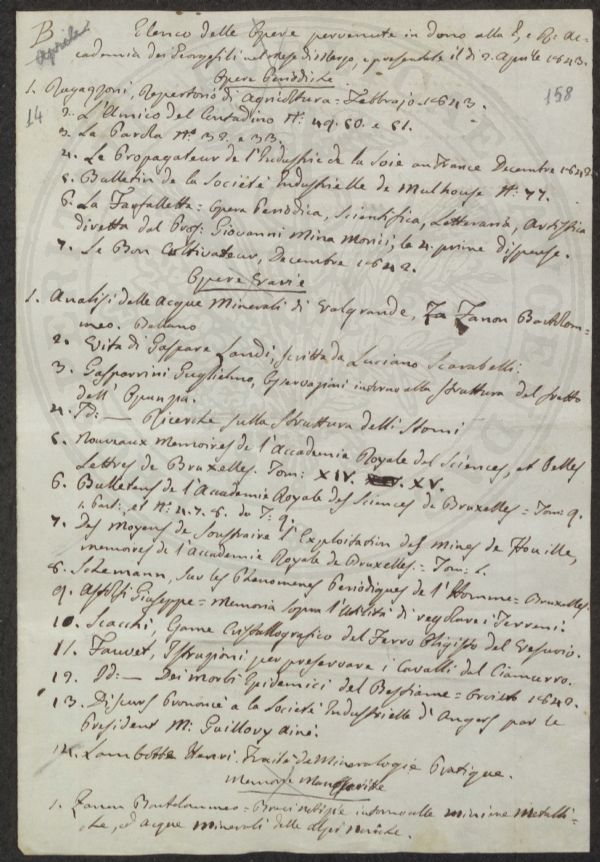 B
Aprile
Elenco delle Opere pervenute in dono alla I. e R. Ac-
cademia dei Georgofili nel mese di Marzo, e presentate il dì 2. Aprile 1843.
Opere Periodiche
158
14
1. Ragazzoni, Repertorio di Agricoltura = Febbrajo 1843.
2. L'Amico del Contadino N.° 49. 50. e 51.
3. La Parola N.° 32. e 33.
4. Le Propagateur de l'Industrie de la Soie en France Decembre 1842.
5. Bulletin de la Société Industrielle de Mulhouse N.° 77.
6. La Farfalletta = Opera Periodica, Scientifica, Letteraria, Artistica
diretta dal Prof: Giovanni Mina Morici, le 4. prime dispense.
7. Le Bon Cultivateur, Decembre 1842.
Opere Varie
1. Analisi delle Acque Minerali di Valgrande, Zanon Bartolom-
meo. Belluno
2. Vita di Gaspare Landi, scritta da Luciano Scarabelli.
3. Gasparrini Guglielmo, Osservazioni intorno alla struttura del frutto
dell'Opunzia.
4. Id: — Ricerche sulla struttura delli Stomi
5. Nouveaux Memoires de l'Academie Royale des Sciences, et Belles
Lettres de Bruxelles. Tom: XIV. XV.
6. Bulletins de l'Academie Royale des Sciences de Bruxelles = Tom: 9.
1. Part:, et N.° 4. 7. 8. du T: 9.
7. Des Moyens de Soustraire l'Exploitation des Mines de Houille,
memoires de l'Academie Royale de Bruxelles = Tom: 1.
8. sur les Phenomenes Periodiques de l'Homme = Bruxelles.
9. Astolfi Giuseppe = Memoria sopra l'Utilità di regolare i Terreni.
10. Scacchi, Esame Cristallografico del Ferro Oligisto del Vesuvio.
11. Fauvet, Istruzioni per preservare i Cavalli dal Ciamorro.
12. Id: — Dei Morbi Epidemici del Bestiame = 1842.
13. Discours Prononcé a la Société Industrielle d'Angers par le
President M: Guillory ainé.
14. Lambotte Henri. Traité de Mineralogie Pratique.
Memorie Manoscritte
1. Zanon Bartolommeo = intorno alle miniere metalli-
che, ed acque minerali delle alpi Noriche.